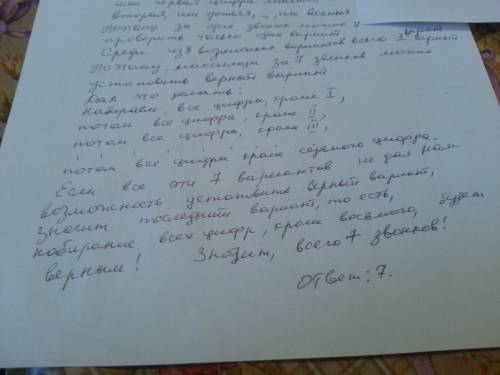 или первая цифра лишняя,
вторая, или третья, ..., или восьмая
Поэтому за один звонок можно
проверить только один вариант.
Среди из 8 возможных вариантов всего 1 верный.
Поэтому, максимум за 7 звонков можно
установить верный вариант.
Как это делать:
Набираем, все цифры, кроме I,
потом все цифры, кроме II,
потом все цифры, кроме III,
потом все цифры кроме седьмого цифра.
Если все эти 7 вариантов не дал нам
возможность установить верный вариант,
значит последний вариант, то есть,
набирание всех цифр, кроме восьмого, будет
верным! Значит, всего 7 звонков!
Ответ: 7.